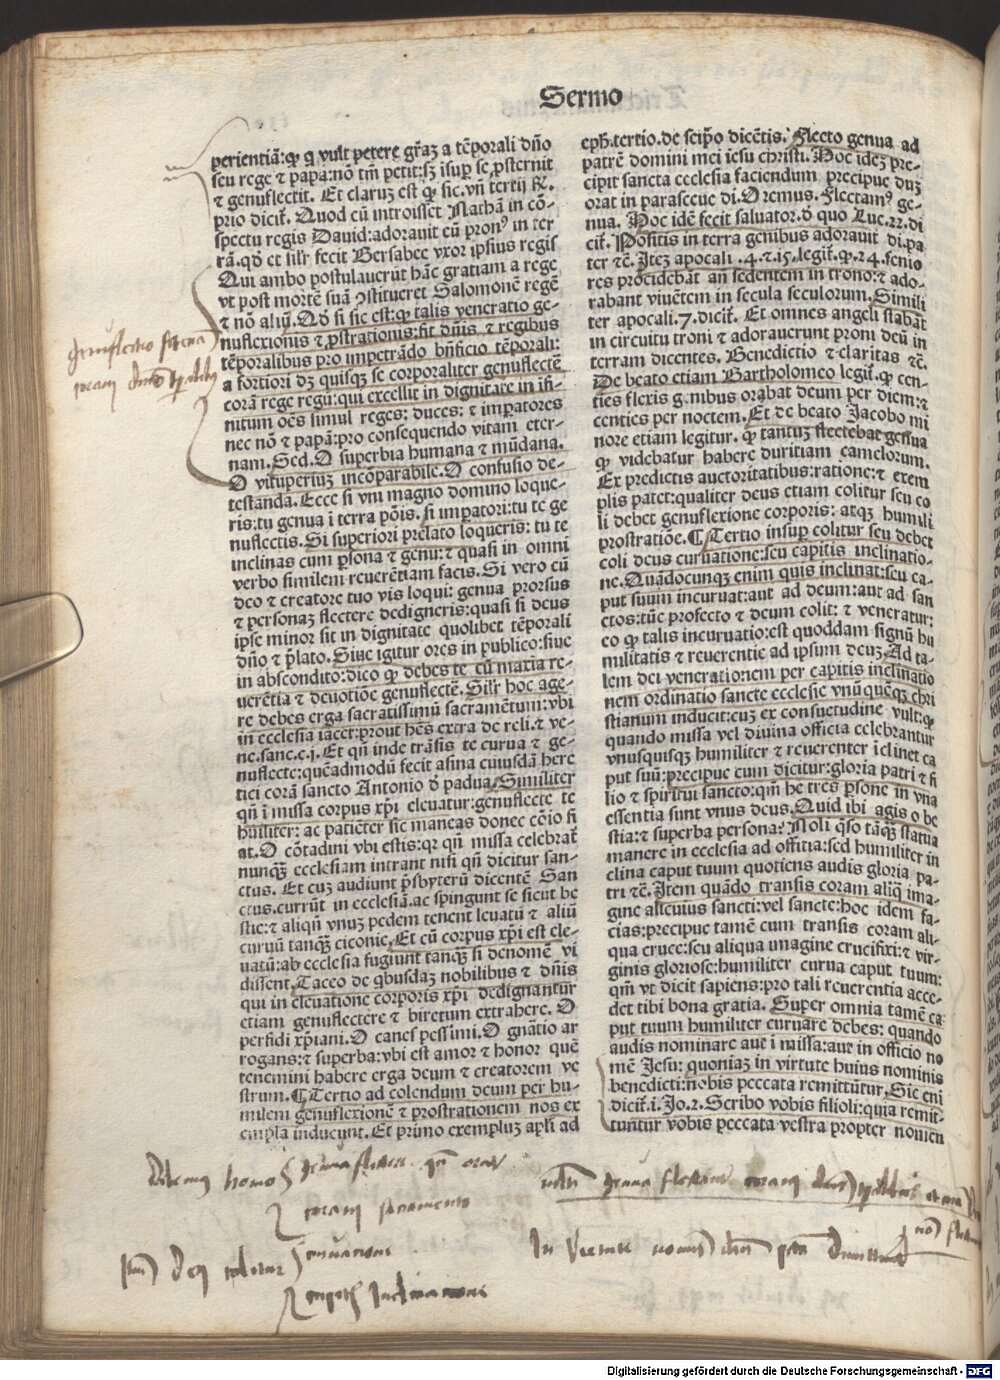 Sermo
perientiã: qꝫ q vult petere gr̃aꝫ a tẽporali dño
seu rege ⁊ papa: nõ tm̃ petit: sꝫ isup se ꝓsternit
⁊ genuflectit. Et clarus est qꝫ sic. vñ tertij Re.
prio dicit̃. Quod cũ introisset Nathã in cõ-
spectu regis Dauid: adorauit eũ pronꝰ in ter
rã. qd̓ et silr̃ fecit Bersabee vxor ipsius regis
Qui ambo postulauerũt hãc gratiam a rege
vt post mortẽ suã ꝯstitueret Salomonẽ regẽ
⁊ nõ aliũ. Qd̓ si sic est: qꝫ talis veneratio ge-
nuflexionis ⁊ ꝓstrationis: fit dñis ⁊ regibus
tẽporalibus pro impetrãdo bñficio tẽporali:
a fortiori dꝫ quisqꝫ se corporaliter genuflectẽ
corã rege regũ: qui excellit in dignitate in ifi-
nitum oẽs simul reges: duces: ⁊ imꝑatores
nec nõ ⁊ papã: pro consequendo vitam eter-
nam. Sed. O superbia humana ⁊ mũdana.
O vituperiuꝫ incõparabile. O confusio de-
testanda. Ecce si vni magno domino loque-
ris: tu genua ĩ terra põis. si imꝑatori: tu te ge
nuflectis. Si superiori prelato loqueris: tu te
inclinas cum ꝑsona ⁊ genu: ⁊ quasi in omni
verbo similem reuerẽtiam facis. Si vero cũ
deo ⁊ creatore tuo vis loqui: genua prorsus
⁊ personaꝫ flectere dedigneris: quasi si deus
ipse minor sit in dignitate quolibet tẽporali
dño ⁊ p̃lato. Siue igitur ores in publico: siue
in abscondito: dico qꝫ debes te cũ maxĩa re-
uerẽtia ⁊ deuotiõe genuflectẽ. Silr̃ hoc age-
re debes erga sacratissimũ sacramẽtum: vbi
in ecclesia iacet: prout hẽs extra de reli. ⁊ ve-
ne. sanc. c. j. Et qñ inde trãsis te curua ⁊ ge-
nuflecte: quẽadmodũ fecit asina cuiusdã here
tici corã sancto Antonio d̓ padua. Similiter
qñ ĩ missa corpus xp̃i eleuatur: genuflecte te
huĩliter: ac patiẽter sic maneas donec cõio fi
at. O cõtadini vbi estis: qr qñ missa celebrat̃
nunqꝫ ecclesiam intrant nisi qñ dicitur san-
ctus. Et cuꝫ audiunt p̃sbyterũ dicentẽ San
ctus. currũt in ecclesiã. ac spingunt se sicut be
stie: ⁊ aliqñ vnuꝫ pedem tenent leuatũ ⁊ aliũ
curuũ tanqꝫ ciconie. Et cũ corpus xp̃i est ele-
uatũ: ab ecclesia fugiunt tanqꝫ si demonẽ vi
dissent. Taceo de q̃busdaꝫ nobilibus ⁊ dñis
qui in eleuatione corporis xp̃i dedignantur
etiam genuflectere ⁊ biretum extrahere. O
perfidi xp̃iani. O canes pessimi. O gñatio ar
rogans: ⁊ superba: vbi est amor ⁊ honor quẽ
tenemini habere erga deum ⁊ creatorem ve
strum. ¶ Tertio ad colendum deum per hu-
milem genuflexionẽ ⁊ prostrationem nos ex
empla inducunt. Et primo exempluꝫ apl̃i ad
eph. tertio. de seip̃o dicẽtis. Flecto genua ad
patrẽ domini mei iesu christi. Hoc ideꝫ pre-
cipit sancta ecclesia faciendum precipue duꝫ
orat in parasceue di. Oremus. Flectamꝰ ge-
nua. Hoc idẽ fecit saluator. d̓ quo Luc. 22. di
cit̃. Positis in terra genibus adorauit di. pa
ter ⁊c̃. Iteꝫ apocali. 4. ⁊. 15. legit̃. qꝫ. 24. senio
res procidebãt añ sedentem in trono: ⁊ ado-
rabant viuẽtem in secula seculorum. Simili
ter apocali. 7. dicit̃. Et omnes angeli stabãt
in circuitu troni ⁊ adorauerunt proni deũ in
terram dicentes. Benedictio ⁊ claritas ⁊c̃.
De beato etiam Bartholomeo legit̃. qꝫ cen-
ties flexis g̃nibus orabat deum per diem: ⁊
centies per noctem. Et de beato Jacobo mi
nore etiam legitur. qꝫ tantuꝫ flectebat genua
qꝫ videbatur habere duritiam camelorum.
Ex predictis auctoritatibus: ratione: ⁊ exem
plis patet: qualiter deus etiam colitur seu co
li debet genuflexione corporis: atqꝫ humili
prostratiõe. ¶ Tertio insuꝑ colitur seu debet
coli deus curuatione: seu capitis inclinatio-
ne. Quãdocunqꝫ enim quis inclinat: seu ca-
put suum incuruat: aut ad deum: aut ad san
ctos: tũc profecto ⁊ deum colit: ⁊ veneratur:
eo qꝫ talis incuruatio: est quoddam signũ hu
militatis ⁊ reuerentie ad ipsum deuꝫ. Ad ta-
lem dei venerationem per capitis inclinatio
nem ordinatio sancte ecclesie vnũquẽqꝫ chri
stianum inducit: cuꝫ ex consuetudine vult: qꝫ
quando missa vel diuina officia celebrantur
vnusquisqꝫ humiliter ⁊ reuerenter ĩclinet ca
put suũ: precipue cum dicitur: gloria patri ⁊ fi
lio ⁊ spiritui sancto: qm̃ he tres ꝑsone in vna
essentia sunt vnus deus. Quid ibi agis o be
stia: ⁊ superba persona? Noli q̃so tãqꝫ statua
manere in ecclesia ad offitia: sed humiliter in
clina caput tuum quotiens audis gloria pa-
tri ⁊c̃. Item quãdo transis coram aliq̃ ima-
gine alicuius sancti: vel sancte: hoc idem fa-
cias: precipue tamẽ cum transis coram ali-
qua cruce: seu aliqua imagine crucifixi: ⁊ vir-
ginis gloriose: humiliter curua caput tuum:
qm̃ vt dicit sapiens: pro tali reuerentia acce-
det tibi bona gratia. Super omnia tamẽ ca
put tuum humiliter curuare debes: quando
audis nominare aut ĩ missa: aut in officio no
mẽ Jesu: quoniaꝫ in virtute huius nominis
benedicti: nobis peccata remittũtur. Sic eni
dicit̃. i. Jo. 2. Scribo vobis filioli: quia remit-
tuntur vobis peccata vestra propter nomen
genuflectio
coram
homo genua flectere qñ orat
coram sacramento
colitur
capitis Inclinatione
genua coram
In virtute
Digitalisierung gefördert durch die Deutsche Forschungsgemeinschaft - DFG